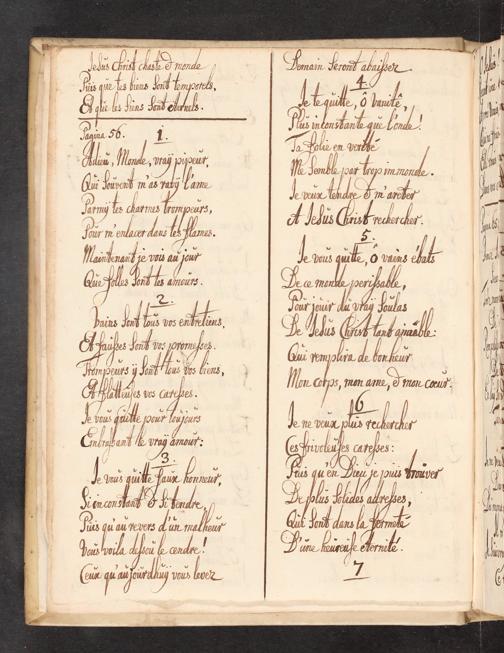 Jesus Christ chaste & monde
Puis que tes biens sont temporels,
Et que les siens sont eternels.
Pagina 56. 1.
Adieu, Monde, vray pipeur,
Qui souvent m'as ravy l'ame
Parmy tes charmes trompeurs,
Pour m'enlacer dans tes flames.
Maintenant je vois au jour
Que folles sont tes amours.
2.
Vains sont tous vos entretiens,
Et fausses sont vos promesses.
Trompeurs y sont tous vos biens,
Et flatteuses vos caresses.
Je vous quitte pour toujours
Embrassant le vray amour.
3.
Je vous quitte faux honneur,
Si inconstant & si tendre,
Puis qu'au revers d'un malheur
Vous voila dessou le cendre!
Ceux qu'aujourdhuy vous levez
Demain seront abaissez.
4
Je te quitte, ô vanité,
Plus inconstante que l'onde!
Ta folie en verité
Me semble par trop immonde.
Je veux tendre & m'areter
A Jesus Christ rechercher.
5.
Je vous quitte, ô vains ébats
De ce monde perissable,
Pour jouir du vray soulas
De Jesus Christ tant aimable:
Qui remplira de bonheur
Mon corps, mon ame, & mon coeur.
6
Je ne veux plus rechercher
Ces frivoleuses caresses:
Puis qu'en Dieu je puis trouver
De plus solides adresses,
Qui sont dans la fermeté
D'une heureuse eternité.
7